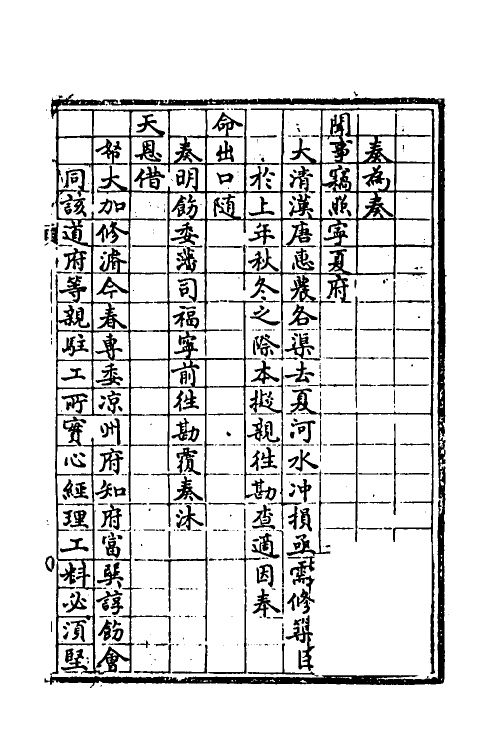 奏為奏
聞事竊照寧夏府
大清漢唐惠農各渠去夏河水冲損亟需修築臣
於上年秋冬之際本擬親徃勘查適因奉
命出口随
奏明飭委藩司福寧前徃勘覆奏沐
天恩借
帑大加修濬今春專委凉州府知府富巽諄飭會
同該道府等親駐工所實心經理工料必須堅